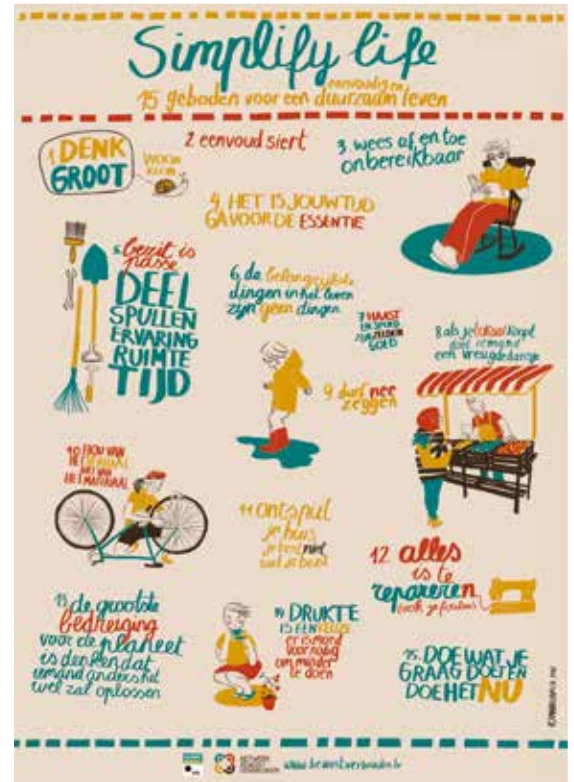 Simplify life
eenvoudig en
15 geboden voor een duurzaam leven
1. DENK
GROOT
WOON
KLEIN
2 eenvoud siert
3. wees af en toe
onbereikbaar
4. HET IS JOUW TIJD
GA VOOR DE ESSENTIE
5. bezit is
passé
DEEL
SPULLEN
ERVARING
RUIMTE
TIJD
6. de belangrijkste
dingen in het leven
zijn geen dingen
7 HAAST
EN SPOED
ZIJN ZELDEN
GOED
8 als je lokaal koopt
doet iemand
een vreugdedansje
9 durf nee
zeggen
10 HOU VAN
HET VERHAAL
NIET VAN
HET MATERIAAL
11 ontspul
je huis
je bent niet
wat je bezit
12 alles
is te
repareren
13 de grootste
bedreiging
voor de planeet
is denken dat
iemand anders het
wel zal oplossen
14 DRUKTE
IS EEN KEUZE
er is moed
voor nodig
om minder
te doen
15. DOE WAT JE
GRAAG DOET EN
DOE HET NU
NETWERK
BEWUST
VERBRUIKEN
www.bewustverbruiken.be